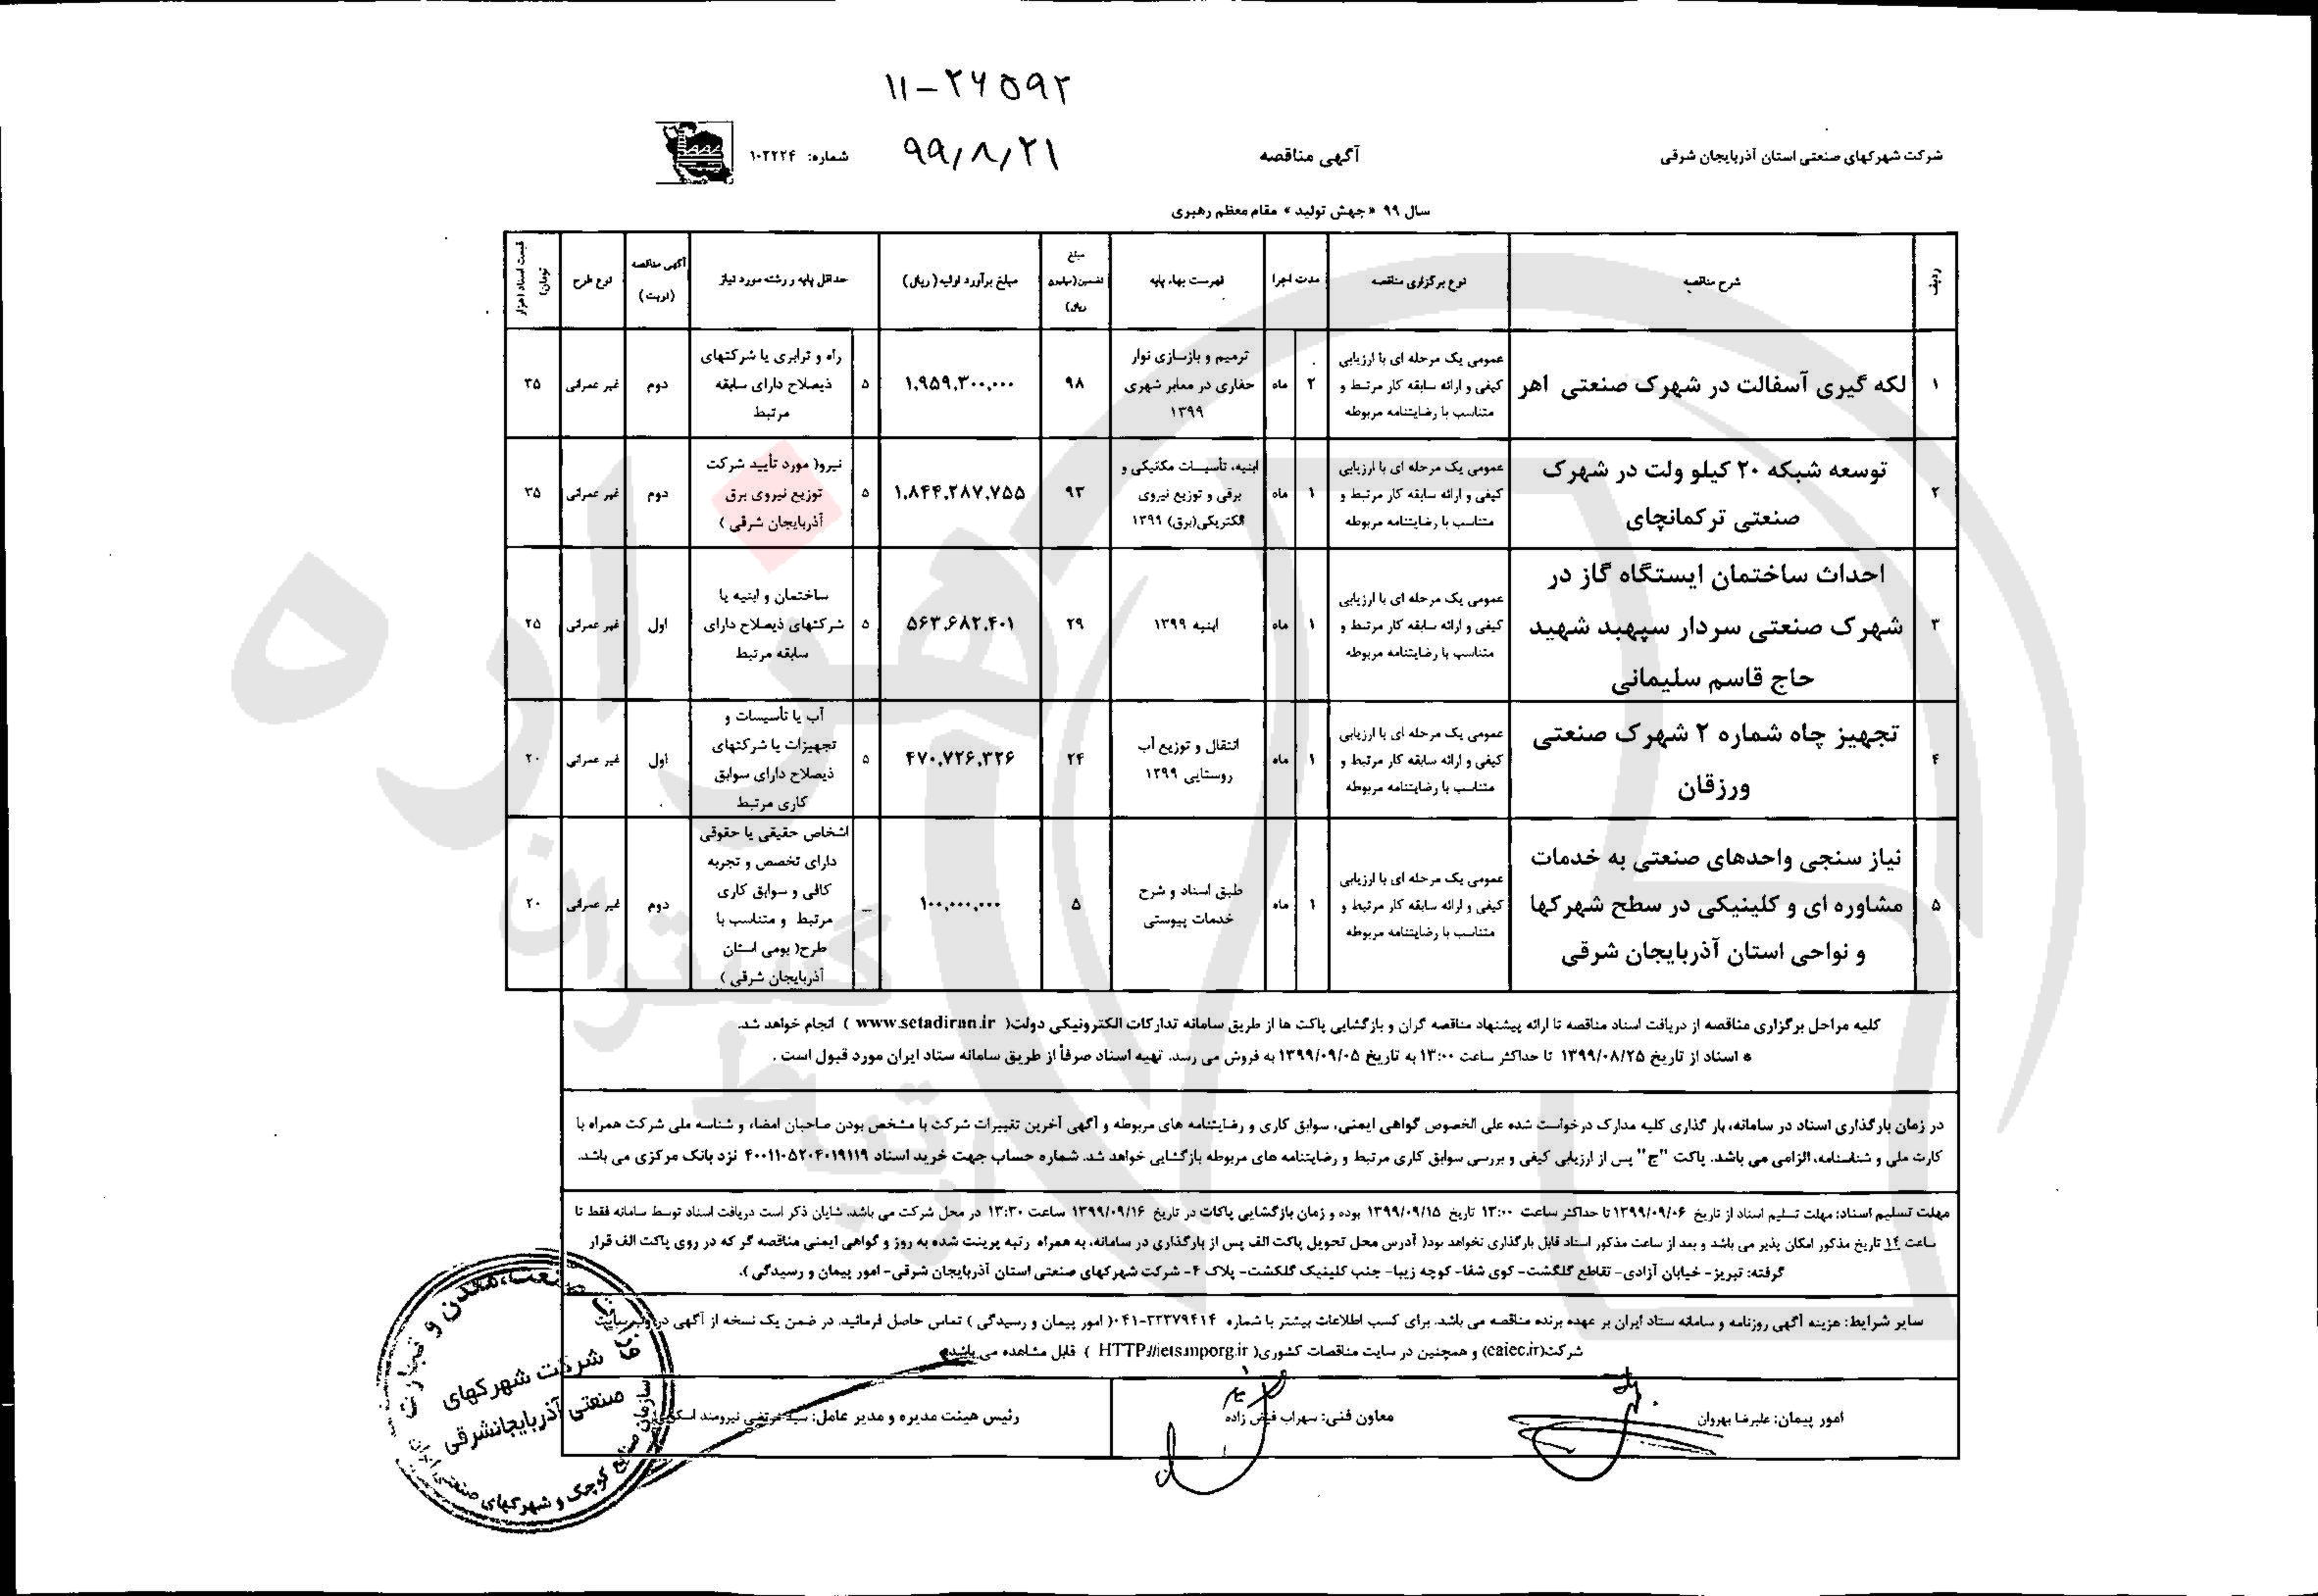 ۱۱-۲۶۵۹۲
شرکت شهرکهای صنعتی استان آذربایجان شرقی
آگهی مناقصه
۹۹/۸/۲۱
شماره: ۱۰۲۲۲۴
سال ۹۹ « جهش تولید » مقام معظم رهبری
ردیف
شرح مناقصه
نوع برگزاری مناقصه
مدت اجرا
فهرست بهاء پایه
مبلغ
تضمین(میلیون
ریال)
مبلغ برآورد اولیه( ریال)
حداقل پایه و رشته مورد نیاز
آگهی مناقصه
(نوبت)
نوع طرح
قیمت اسناد (هزار
تومان)
۱
لکه گیری آسفالت در شهرک صنعتی اهر
عمومی یک مرحله ای با ارزیابی
کیفی و ارائه سابقه کار مرتبط و
متناسب با رضایتنامه مربوطه
۲
ماه
ترمیم و بازسازی نوار
حفاری در معابر شهری
۱۳۹۹
۹۸
۱,۹۵۹,۳۰۰,۰۰۰
۵
راه و ترابری یا شرکتهای
ذیصلاح دارای سابقه
مرتبط
دوم
غیر عمرانی
۳۵
۲
توسعه شبکه ۲۰ کیلو ولت در شهرک
صنعتی ترکمانچای
عمومی یک مرحله ای با ارزیابی
کیفی و ارائه سابقه کار مرتبط و
متناسب با رضایتنامه مربوطه
۱
ماه
ابنیه، تأسیسات مکانیکی و
برقی و توزیع نیروی
الکتریکی(برق) ۱۳۹۹
۹۳
۱,۸۴۴,۲۸۷,۷۵۵
۵
نیرو( مورد تأیید شرکت
توزیع نیروی برق
آذربایجان شرقی )
دوم
غیر عمرانی
۳۵
۳
احداث ساختمان ایستگاه گاز در
شهرک صنعتی سردار سپهبد شهید
حاج قاسم سلیمانی
عمومی یک مرحله ای با ارزیابی
کیفی و ارائه سابقه کار مرتبط و
متناسب با رضایتنامه مربوطه
۱
ماه
ابنیه ۱۳۹۹
۲۹
۵۶۳,۶۸۲,۴۰۱
۵
ساختمان و ابنیه یا
شرکتهای ذیصلاح دارای
سابقه مرتبط
اول
غیر عمرانی
۲۵
۴
تجهیز چاه شماره ۲ شهرک صنعتی
ورزقان
عمومی یک مرحله ای با ارزیابی
کیفی و ارائه سابقه کار مرتبط و
متناسب با رضایتنامه مربوطه
۱
ماه
انتقال و توزیع آب
روستایی ۱۳۹۹
۲۴
۴۷۰,۷۲۶,۳۲۶
۵
آب یا تأسیسات و
تجهیزات یا شرکتهای
ذیصلاح دارای سوابق
کاری مرتبط
اول
غیر عمرانی
۲۰
۵
نیاز سنجی واحدهای صنعتی به خدمات
مشاوره ای و کلینیکی در سطح شهرکها
و نواحی استان آذربایجان شرقی
عمومی یک مرحله ای با ارزیابی
کیفی و ارائه سابقه کار مرتبط و
متناسب با رضایتنامه مربوطه
۱
ماه
طبق اسناد و شرح
خدمات پیوستی
۵
۱۰۰,۰۰۰,۰۰۰
_
اشخاص حقیقی یا حقوقی
دارای تخصص و تجربه
کافی و سوابق کاری
مرتبط و متناسب با
طرح( بومی استان
آذربایجان شرقی )
دوم
غیر عمرانی
۲۰
کلیه مراحل برگزاری مناقصه از دریافت اسناد مناقصه تا ارائه پیشنهاد مناقصه گران و بازگشایی پاکت ها از طریق سامانه تدارکات الکترونیکی دولت( www.setadiran.ir ) انجام خواهد شد.
* اسناد از تاریخ ۱۳۹۹/۰۸/۲۵ تا حداکثر ساعت ۱۳:۰۰ به تاریخ ۱۳۹۹/۰۹/۰۵ به فروش می رسد. تهیه اسناد صرفاً از طریق سامانه ستاد ایران مورد قبول است .
در زمان بارگذاری اسناد در سامانه، بار گذاری کلیه مدارک درخواست شده علی الخصوص گواهی ایمنی، سوابق کاری و رضایتنامه های مربوطه و آگهی آخرین تغییرات شرکت با مشخص بودن صاحبان امضاء و شناسه ملی شرکت همراه با
کارت ملی و شناسنامه، الزامی می باشد. پاکت "ج" پس از ارزیابی کیفی و بررسی سوابق کاری مرتبط و رضایتنامه های مربوطه بازگشایی خواهد شد. شماره حساب جهت خرید اسناد ۴۰۰۱۱۰۵۲۰۴۰۱۹۱۱۹ نزد بانک مرکزی می باشد.
مهلت تسلیم اسناد: مهلت تسلیم اسناد از تاریخ ۱۳۹۹/۰۹/۰۶ تا حداکثر ساعت ۱۳:۰۰ تاریخ ۱۳۹۹/۰۹/۱۵ بوده و زمان بازگشایی پاکات در تاریخ ۱۳۹۹/۰۹/۱۶ ساعت ۱۳:۳۰ در محل شرکت می باشد. شایان ذکر است دریافت اسناد توسط سامانه فقط تا
ساعت ۱۴ تاریخ مذکور امکان پذیر می باشد و بعد از ساعت مذکور اسناد قابل بارگذاری نخواهد بود( آدرس محل تحویل پاکت الف پس از بارگذاری در سامانه، به همراه رتبه پرینت شده به روز و گواهی ایمنی مناقصه گر که در روی پاکت الف قرار
گرفته: تبریز- خیابان آزادی- تقاطع گلگشت- کوی شفا- کوچه زیبا- جنب کلینیک گلگشت- پلاک ۴- شرکت شهرکهای صنعتی استان آذربایجان شرقی- امور پیمان و رسیدگی ).
سایر شرایط: هزینه آگهی روزنامه و سامانه ستاد ایران بر عهده برنده مناقصه می باشد. برای کسب اطلاعات بیشتر با شماره ۳۳۳۷۹۴۱۴-۰۴۱( امور پیمان و رسیدگی ) تماس حاصل فرمائید. در ضمن یک نسخه از آگهی در وب سایت
شرکت(caiec.ir) و همچنین در سایت مناقصات کشوری( HTTP://iets.mporg.ir ) قابل مشاهده می باشد.
امور پیمان: علیرضا بهروان
معاون فنی: سهراب فیض زاده
رئیس هیئت مدیره و مدیر عامل: سید مرتضی نیرومند
وزارت صنعت، معدن و تجارت
شرکت شهرکهای
صنعتی آذربایجانشرقی
سازمان صنایع کوچک و شهرکهای صنعتی ایران
هزاره
گستران